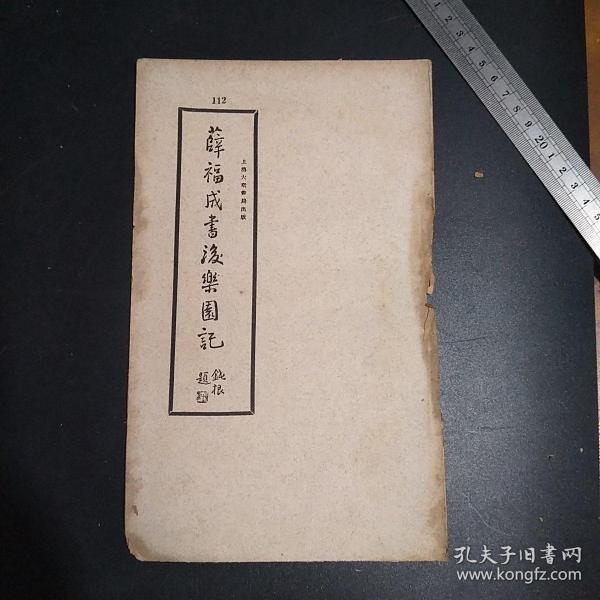 112
上海大衆書局出版
薛福成書後樂園記
鈍根
題
孔夫子旧書网
www.kongfz.com
1 2 3 4 5 6 7 8 9 20 1 2 3 4 5